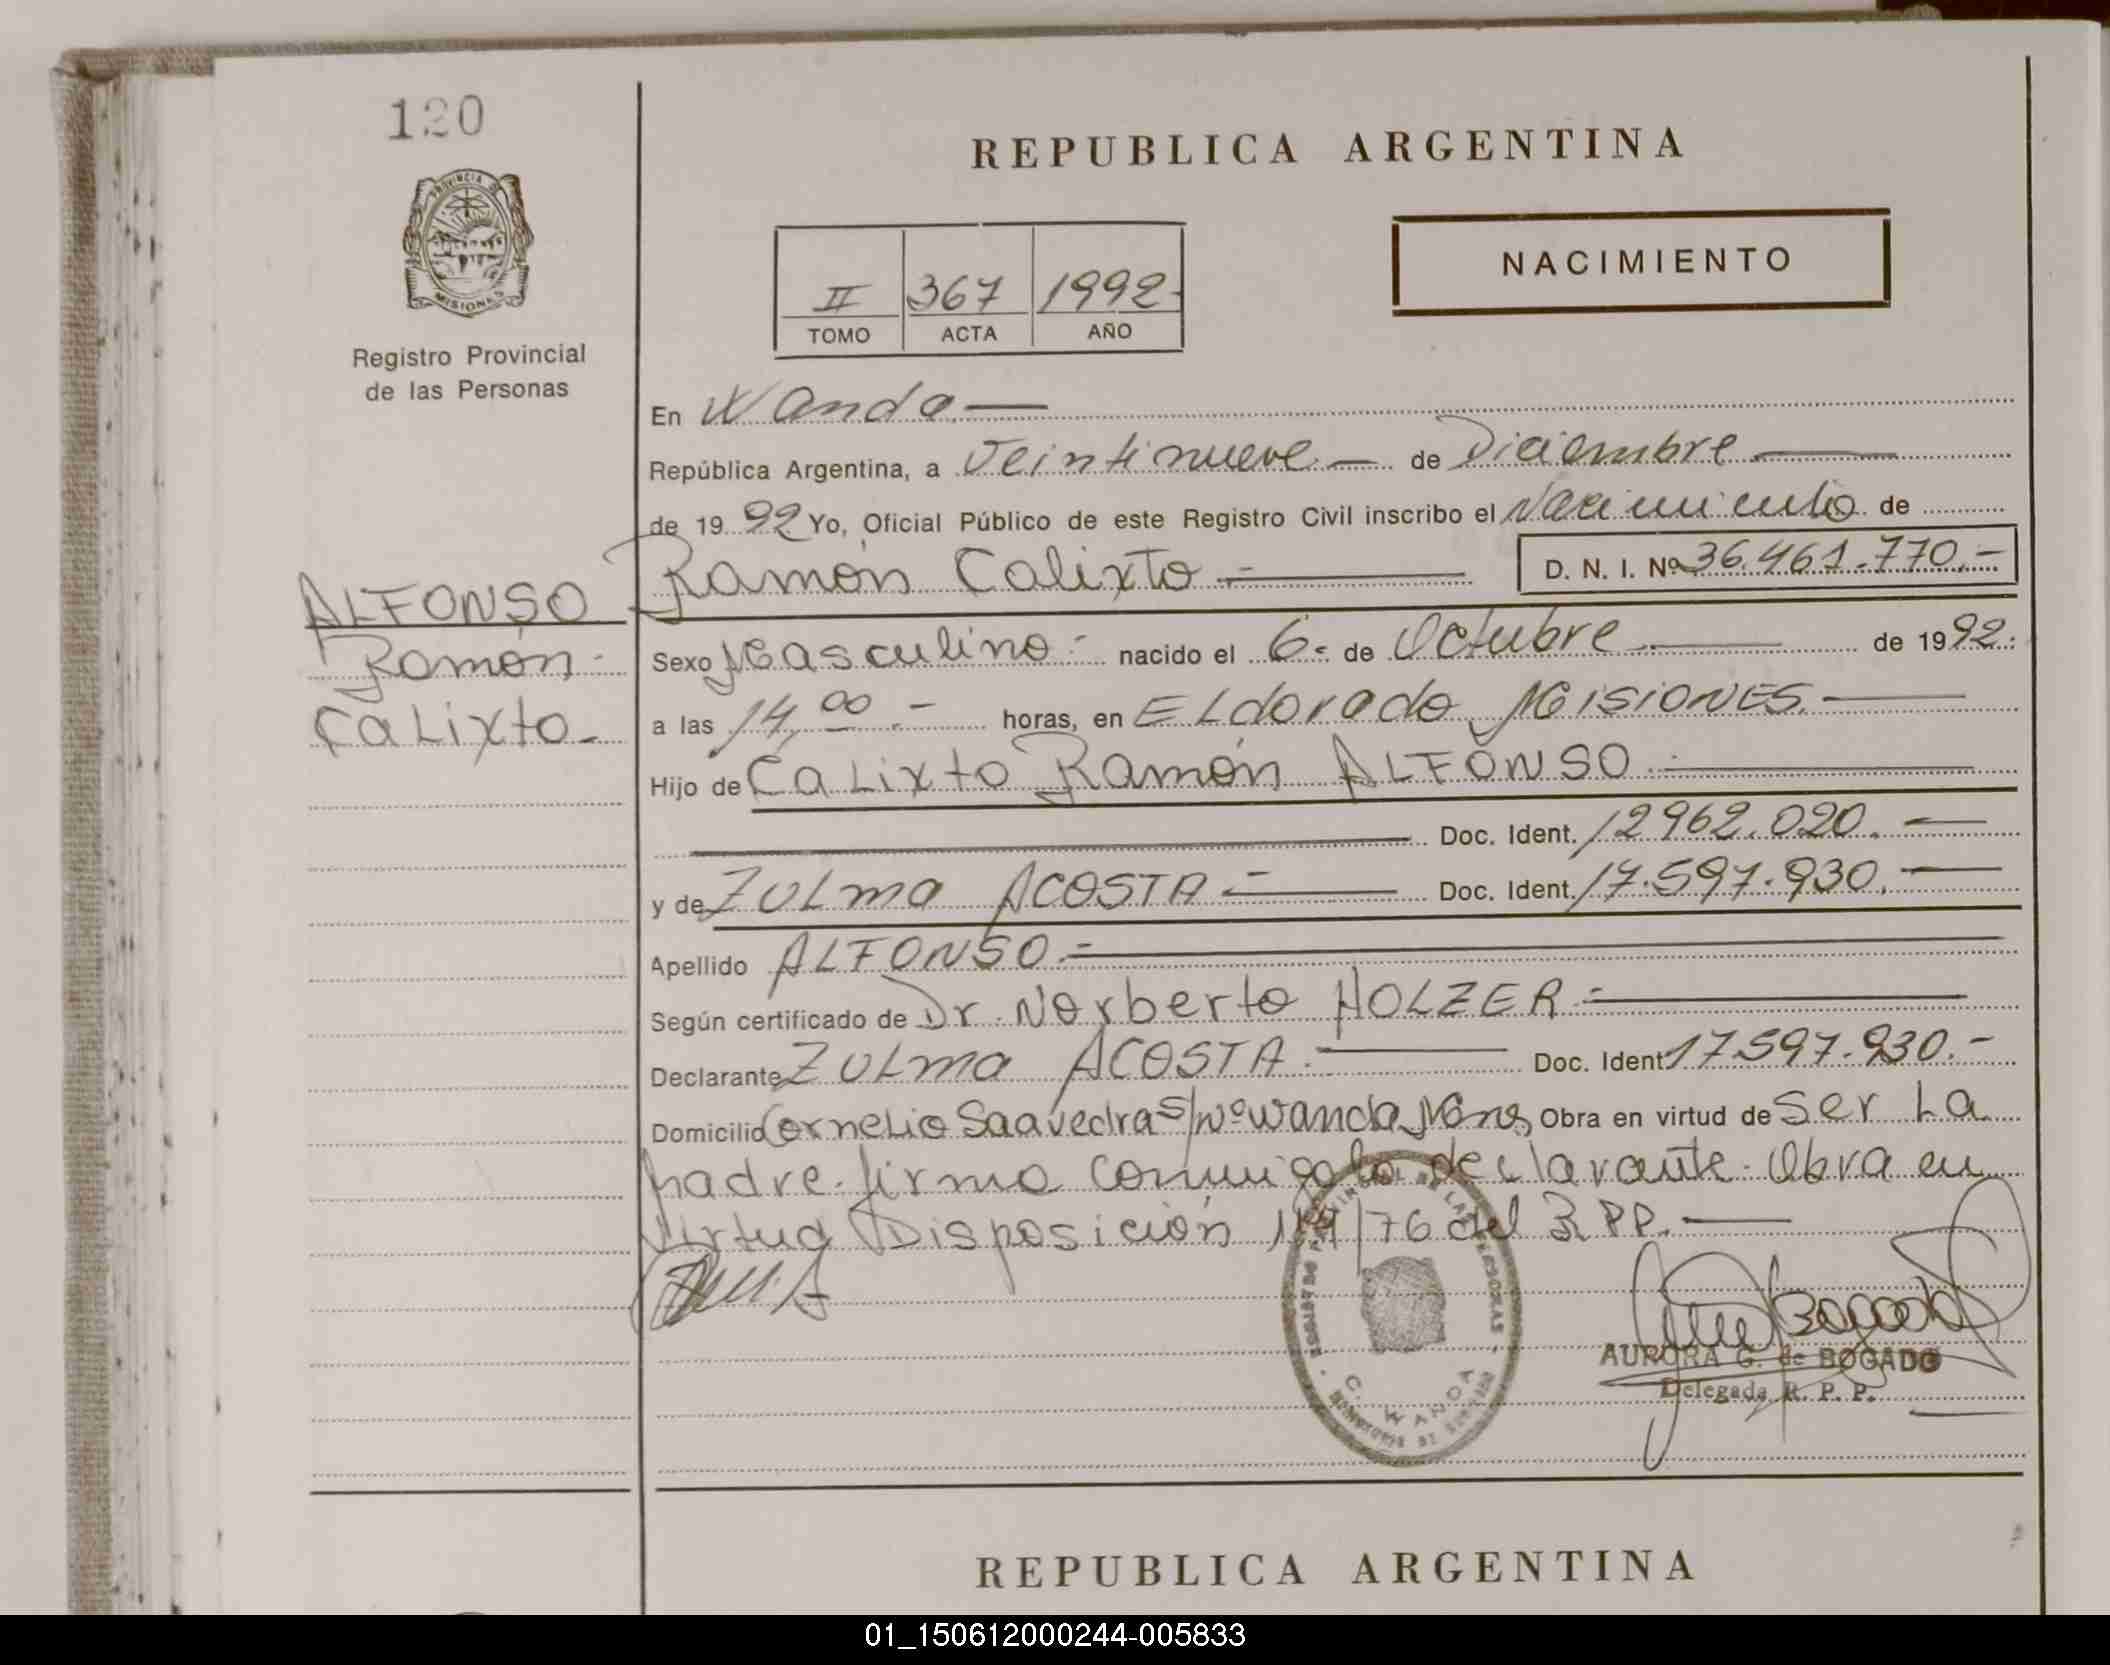 120
PROVINCIA DE
MISIONES
Registro Provincial
de las Personas
REPUBLICA ARGENTINA
NACIMIENTO
II 367 1992.
TOMO ACTA AÑO
En Wanda.—
República Argentina, a Veintinueve.— de Diciembre —
de 19 92 Yo, Oficial Público de este Registro Civil inscribo el Nacimiento de
Ramón Calixto.— D. N. I. Nº 36.461.770.—
ALFONSO
Ramón
Calixto.
Sexo Masculino.- nacido el 6.- de Octubre — de 1992.
a las 14,00.- horas, en ELdorado MISIONES.—
Hijo de CaLixto Ramón ALFONSO.—
Doc. Ident. 12962.020.—
y de ZULma ACOSTA.— Doc. Ident. 17.597.930.—
Apellido ALFONSO.—
Según certificado de Dr. Norberto HOLZER.—
Declarante ZULma ACOSTA.— Doc. Ident 17.597.930.-
Domicilio Cornelio Saavedra s/nº Wanda Mnes Obra en virtud de ser La
madre. firma conmigo la declarante. Obra en
virtud Disposición /76 del R.P.P.—
C. WANDA
AURORA G. de BOGADO
Delegada R. P. P.
REPUBLICA ARGENTINA
01_150612000244-005833